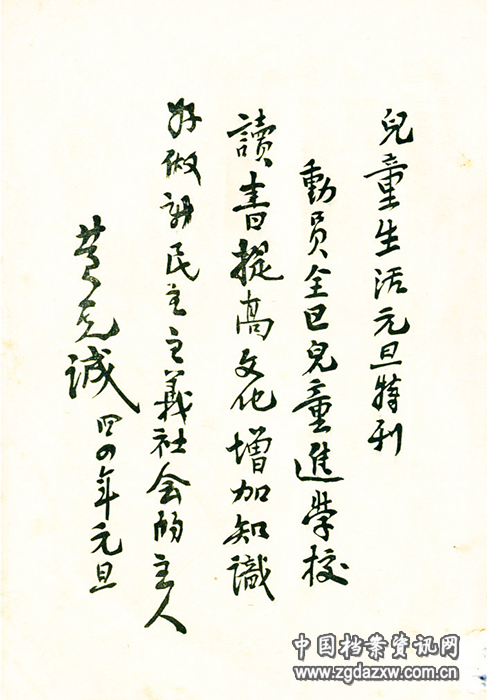 兒童生活元旦特刊
動员全区兒童進學校
讀書提高文化增加知識
好做新民主主義社会的主人
黄克诚 四四年元旦
中国档案资讯网
www.zgdazxw.com.cn